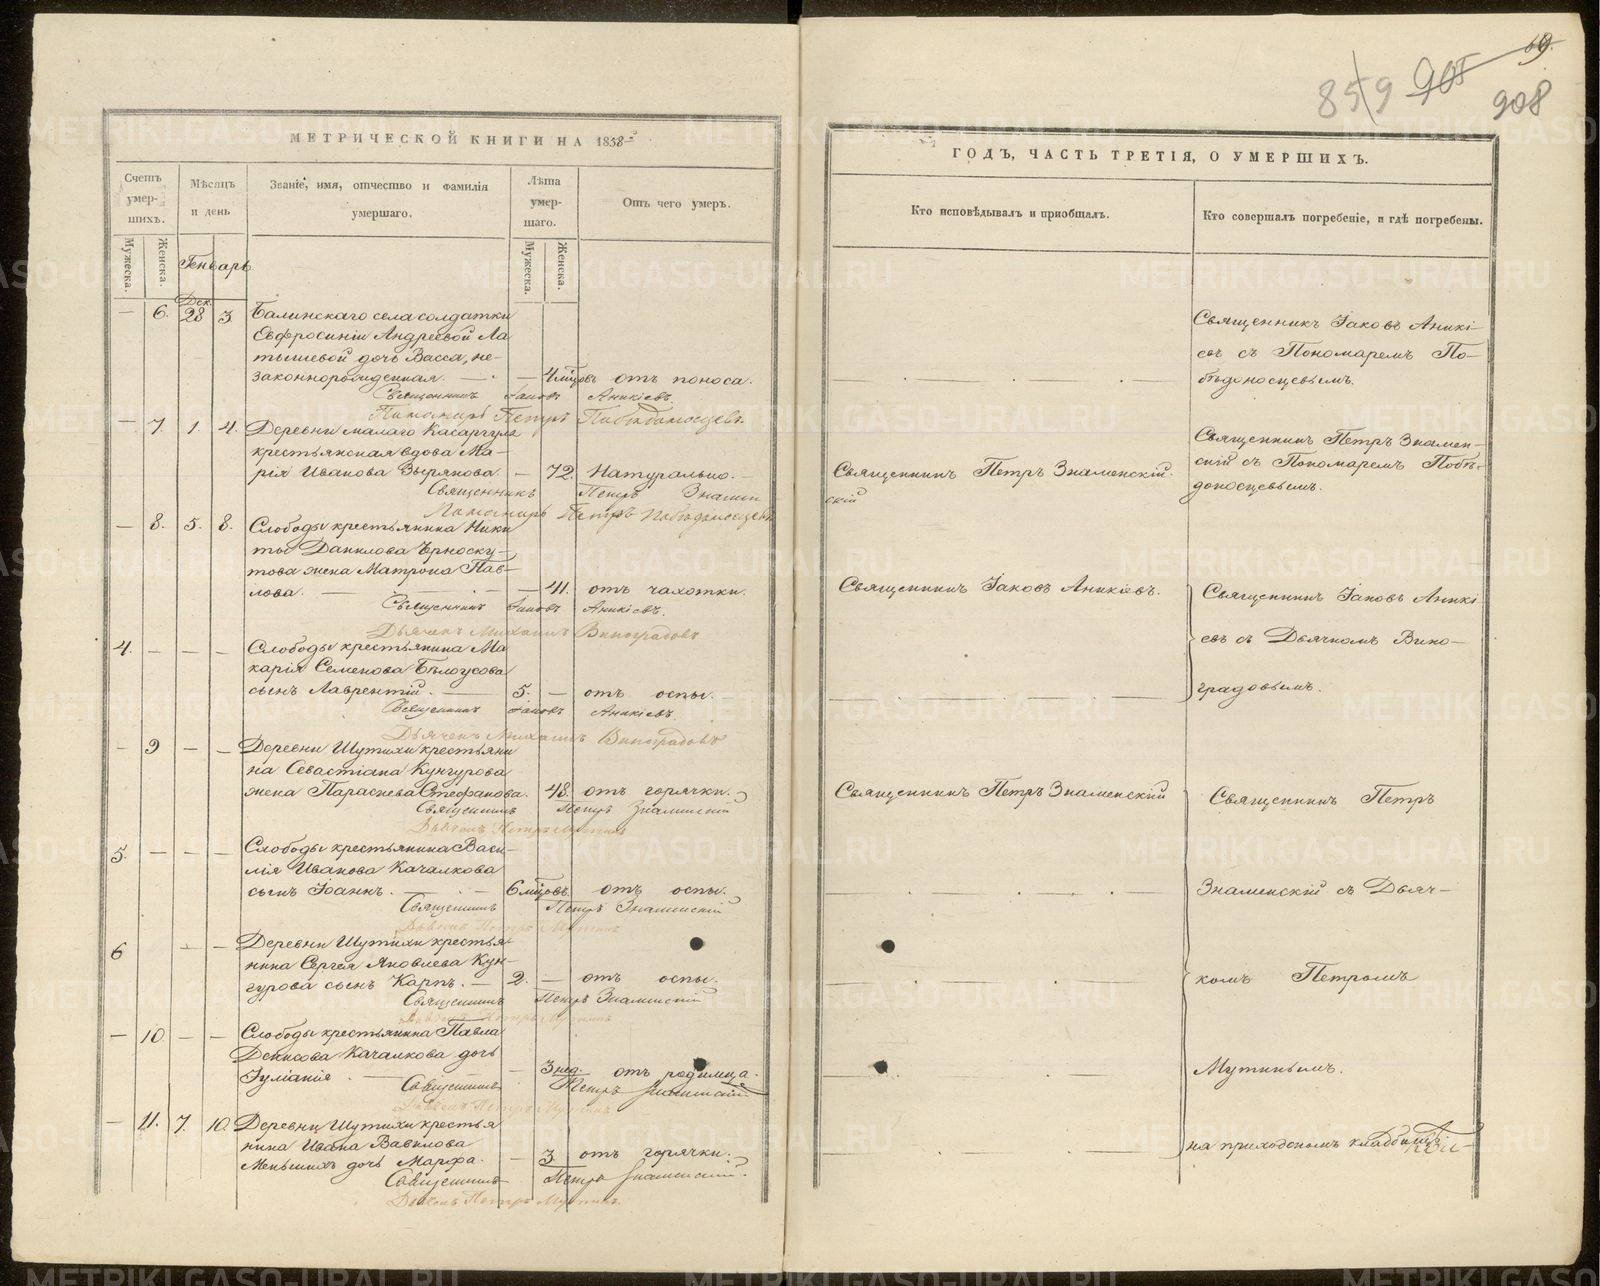 69.
85/9 905 908
МЕТРИЧЕСКОЙ КНИГИ НА 1858
Счетъ умер-шихъ.
Мѣсяцъ и день
Званіе, имя, отчество и фамилія умершаго.
Лѣта умер-шаго.
Отъ чего умеръ.
Мужеска. Женска.
Генварь
Мужеска. Женска.
Дек.
— 6. 28 3. Балинскаго села солдатки
Евфросиніи Андреевой Ла
тышевой дочь Васса, не-
законнорожденная. — — 4 мцовъ отъ поноса.
Священникъ Іаковъ Аникіевъ.
Пономарь Петръ Побѣдоносцевъ.
— 7. 1. 4. Деревни малаго Касаргуля
крестьянская вдова Ма-
рія Иванова Зырянова. — 72. Натурально.
Священникъ Петръ Знамен
Пономарь Петръ Побѣдоносцевъ
— 8. 5. 8. Слободы крестьянина Ники
ты Данилова Чрноску-
това жена Матрона Пав-
лова. — — 41. отъ чахотки.
Священникъ Іаковъ Аникіевъ.
Дьячекъ Михаилъ Виноградовъ
4. — — — Слободы крестьянина Ма
карія Семенова Бѣлоусова
сынъ Лаврентій. — 5. — отъ оспы.
Священникъ Іаковъ Аникіевъ.
Дьячекъ Михаилъ Виноградовъ
— 9 — — Деревни Шутихи крестьяни
на Севастіана Кунгурова
жена Параскева Стефанова. 48. отъ горячки.
Священникъ Петръ Знаменскій
Дьячекъ Петръ Мутинъ
5. — — — Слободы крестьянина Васи-
лія Иванова Качалкова
сынъ Іоаннъ. — 6 мцовъ. отъ оспы.
Священникъ Петръ Знаменскій
Дьячекъ Петръ Мутинъ
6 — — Деревни Шутихи крестья-
нина Сергея Яковлева Кун-
гурова сынъ Карпъ. — 2. — отъ оспы.
Священникъ Петръ Знаменскій
Дьячекъ Петръ Мутинъ
— 10. — — Слободы крестьянина Павла
Денисова Качалкова дочь
Іуліанія. — — 3 нед. отъ родимца.
Священникъ Петръ Знаменскій
Дьячекъ Петръ Мутинъ
— 11. 7. 10. Деревни Шутихи крестья
нина Ивана Вавилова
Меньшихъ дочь Марфа. — 3. отъ горячки.
Священникъ Петръ Знаменскій.
Дьячекъ Петръ Мутинъ.
ГОДЪ, ЧАСТЬ ТРЕТІЯ, О УМЕРШИХЪ.
Кто исповѣдывалъ и пріобщалъ.
Кто совершалъ погребеніе, и гдѣ погребены.
Священникъ Іаковъ Аникі-
евъ съ Пономаремъ По-
бѣдоносцевымъ.
Священникъ Петръ Знамен-
Священникъ Петръ Знаменскій.
скій съ Пономаремъ Побѣ-
скій
доносцевымъ.
Священникъ Іаковъ Аникіевъ.
Священникъ Іаковъ Аникі
евъ съ Дьячкомъ Вино-
градовымъ.
Священникъ Петръ Знаменскій
Священникъ Петръ
Знаменскій съ Дьяч-
комъ Петромъ
Мутинымъ.
на приходскомъ кладбищѣ
METRIKI.GASO-URAL.RU